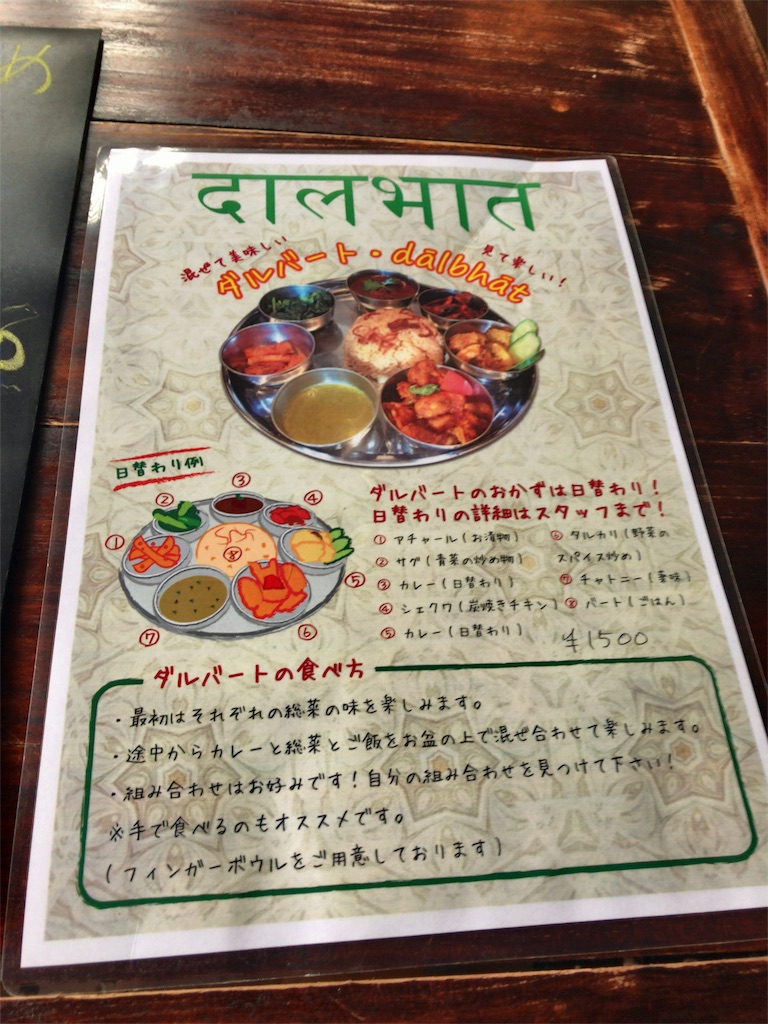 दालभात
混ぜて美味しい
見て楽しい！
ダルバート・dālbhāt
日替わり例
①
②
③
④
⑤
⑥
⑦
⑧
ダルバートのおかずは日替わり！
日替わりの詳細はスタッフまで！
① アチャール(お漬物)
② サグ(青菜の炒め物)
③ カレー(日替わり)
④ シェクワ(炭焼きチキン)
⑤ カレー(日替わり)
⑥ タルカリ(野菜の
スパイス炒め)
⑦ チャトニー(薬味)
⑧ バート(ごはん)
¥1500
ダルバートの食べ方
・最初はそれぞれの総菜の味を楽しみます。
・途中からカレーと総菜とご飯をお盆の上で混ぜ合わせて楽しみます。
・組み合わせはお好みです！自分の組み合わせを見つけて下さい！
※手で食べるのもオススメです。
(フィンガーボウルをご用意しております)
め
る